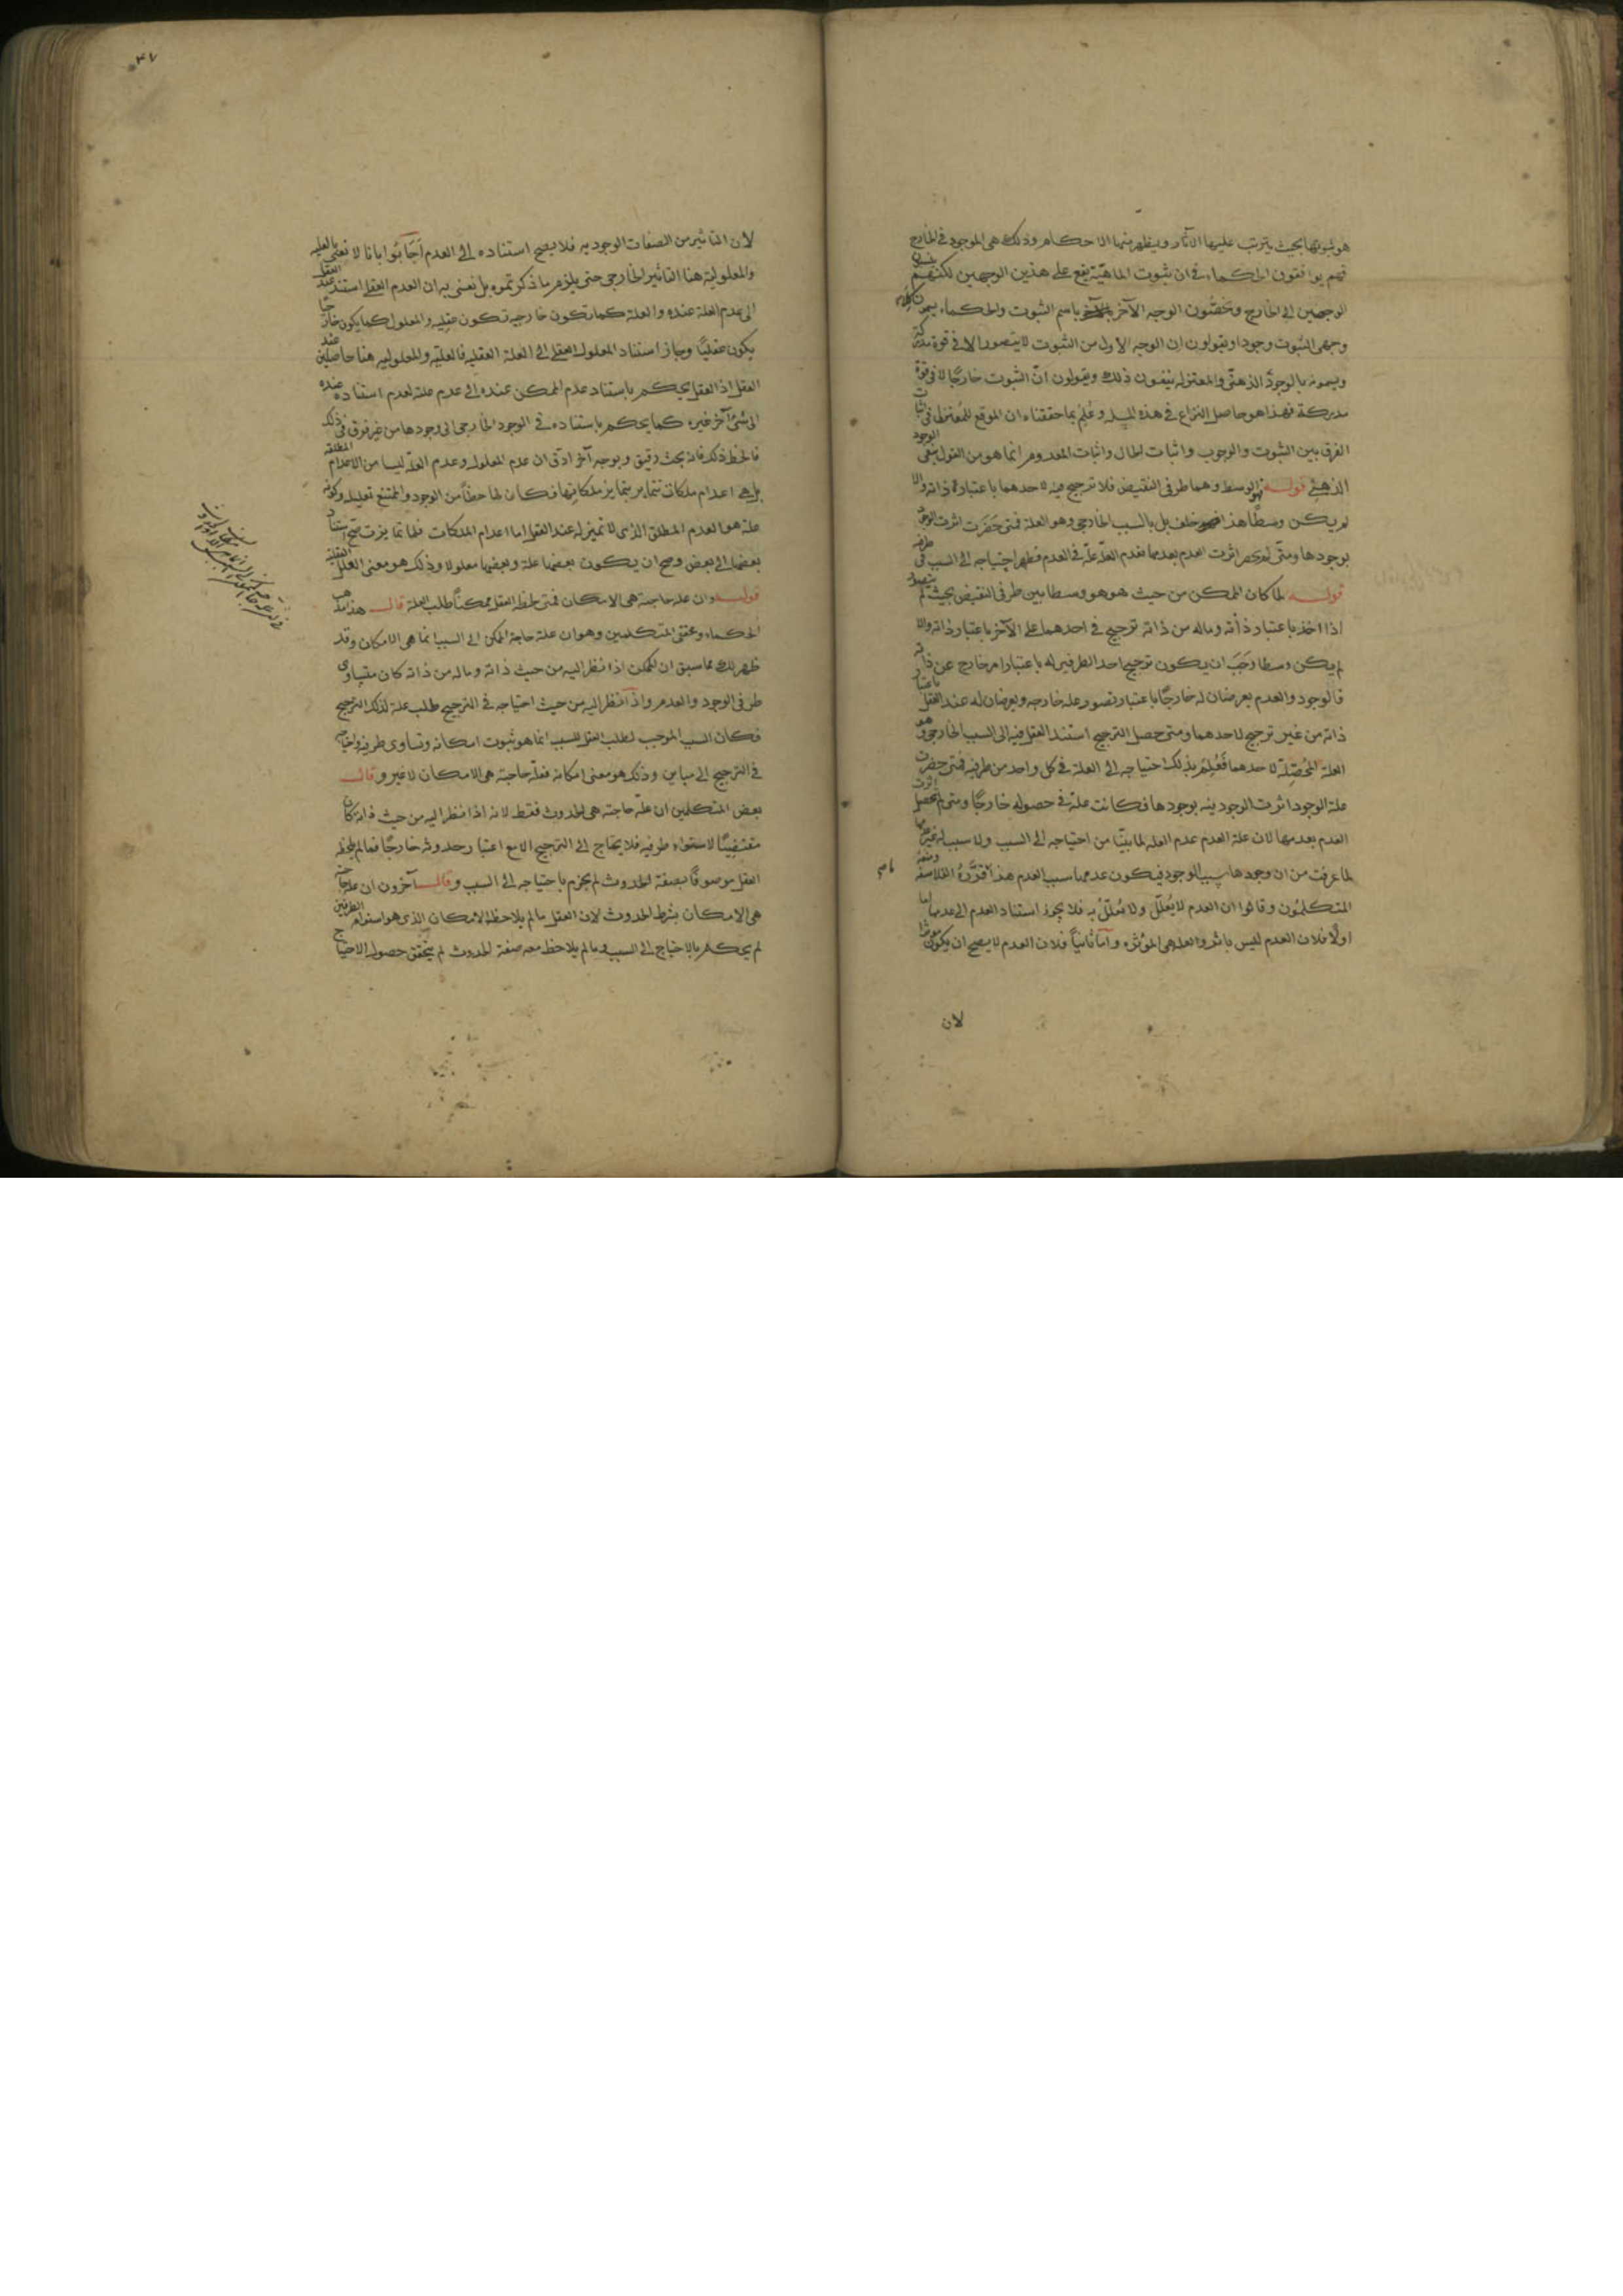 هو ثبوتها بحيث يترتب عليها الآثار ويظهر منها الاحكام وذلك هى الموجود فى الخارج
فهم يوافقون الحكماء فى ان ثبوت الماهيّة يقع على هذين الوجهين لكنهم
الوجهين الى الخارج وخصّون الوجه الآخر باسم الثبوت والحكماء يسمون
وجهى الثبوت وجودا ويقولون ان الوجه الاول من الثبوت لا يتصور الا فى قوة مدركة
ويسمونه بالوجود الذهنى والمعتزله ينفون ذلك ويقولون انّ الثبوت خارجًا لا فى قوة
مدركة فهذا هو حاصل النزاع فى هذه المسله وعُلم بما حققناه ان الموقع للمعتزله فى اثبات
الفرق بين الثبوت والوجوب واثبات الحال واثبات المعدوم انما هو من القول بنفى الوجود
الذهنى قوله الوسط وهما طرفى النقيض فلا ترجيح فيه لاحدهما باعتبار ذاته والا
لم يكن وسطًا هذا خلف بل بالسبب الخارجى وهو العلة فمتى حضرت اثرت الوجود
بوجودها ومتى لم تحضر اثرت العدم بعدمها فعدم العلّة علّة فى العدم فظهر احتياجه الى السبب فى طرفيه
قوله لما كان الممكن من حيث هو هو وسطا بين طرفى النقيض بحيث لم يتصور
اذا اخذ باعتبار ذاته وماله من ذاته ترجيح فى احدهما على الآخر باعتبار ذاته والا
لم يكن وسطا وجَبَ ان يكون ترجيح احد الطرفين له باعتبار امر خارج عن ذاته
فالوجود والعدم يعرضان له خارجًا باعتبار تصور علة خارجه ويعرضان له عند العقل باعتبار
ذاته من غير ترجيح لاحدهما ومتى حصل الترجيح استند العقل فيه الى السبب الخارجى وهو
العلة المحصّلة لاحدهما فعُلم بذلك احتياجه الى العلة فى كل واحد من طرفيه فمتى حضرت
علة الوجود اثرت الوجود فيه بوجودها فكانت علة فى حصوله خارجًا ومتى لم تحصل اثرت
العدم بعدمها لان علة العدم عدم العلة لما بينّا من احتياجه الى السبب ولا سبب له غيرها
لما عرفت من ان وجودها سبب الوجود فيكون عدمها سبب العدم هذا قرّره الفلاسفه ومنعه
المتكلمون وقالوا ان العدم لا يُعلّل ولا يُعلّل به فلا يجوز استناد العدم الى عدمها اما
اولًا فلان العدم ليس باثر والعله هى المؤثره وامّا ثانيًا فلان العدم لا يصح ان يكون مؤثرا
لان
٤٧
لان التاثير من الصفات الوجوديه فلا يصح استناده الى العدم اجابوا بانا لا نعنى بالعليه
والمعلولية هنا التاثير الخارجى حتى يلزم ما ذكرتموه بل نعنى به ان العدم العقلى استند عند العقل
الى عدم العلة عنده والعلة كما تكون خارجيه تكون عقليه والمعلول كما يكون خارجيًا
يكون عقليًا وجاز استناد المعلول العقلى الى العلة العقليه فالعليّه والمعلوليه هنا حاصلين عند
العقل اذ العقل يحكم باستناد عدم الممكن عنده الى عدم علته لعدم استناده عنده
الى شئ آخر غيره كما يحكم باستناده فى الوجود الخارجى الى وجودها من غير فرق فى ذلك
فالحظ ذلك فانه بحث دقيق وبوجه آخر ادق ان عدم المعلول وعدم العلّة ليسا من الاعدام المطلقه
بل هى اعدام ملكات تتمايز بتمايز ملكاتها فكان لها حظًا من الوجود والممتنع تعليله وكونه
علة هو العدم المطلق الذى لا تميز له عند العقل اما اعدام الملكات فلما تمايزت صح استناد
بعضها الى بعض وصح ان يكون بعضها علة وبعضها معلولا وذلك هو معنى العلل العقلية
قوله وان علة حاجته هى الامكان فمتى لحظه العقل ممكنًا طلب العلة قال هذا مذهب
الحكماء ومحققى المتكلمين وهو ان علة حاجة الممكن الى السبب انما هى الامكان وقد
ظهر لك مما سبق ان الممكن اذا نظر اليه من حيث ذاته وماله من ذاته كان متساوى
طرفى الوجود والعدم واذا نظر اليه من حيث احتياجه فى الترجيح طلب علة لذلك الترجيح
فكان السبب الموجب لطلب العقل للسبب انما هو ثبوت امكانه وتساوى طرفيه واحتياجه
فى الترجيح الى مباين وذلك هو معنى امكانه فعلّة حاجته هى الامكان لا غير وقال
بعض المتكلمين ان علّة حاجته هى الحدوث فقط لانه اذا نظر اليه من حيث ذاته كان
مقتضيًا لاستواء طرفيه فلا يحتاج الى الترجيح الا مع اعتبار حدوثه خارجًا فما لم يلحظه
العقل موصوفًا بصفة الحدوث لم يجزم باحتياجه الى السبب وقال آخرون ان علة حاجته
هى الامكان بشرط الحدوث لان العقل ما لم يلاحظ الامكان الذى هو استواء الطرفين
لم يحكم بالاحتياج الى السبب وما لم يلاحظ معه صفة الحدوث لم يتحقق حصول الاحتياج